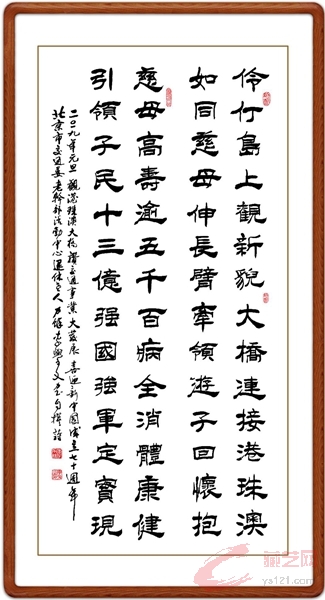 伶仃島上觀新貌大橋連接港珠澳
如同慈母伸長臂牽領遊子回懷抱
慈母高壽逾五千百病全消體康健
引領子民十三億强國強軍定實現
二〇一九年元旦 觀港珠澳大橋 交通事業大發展 喜迎新中國成立七十週年
北京市交通委老幹部活動中心退休老人 書自撰詩
藏艺网
ys121.com